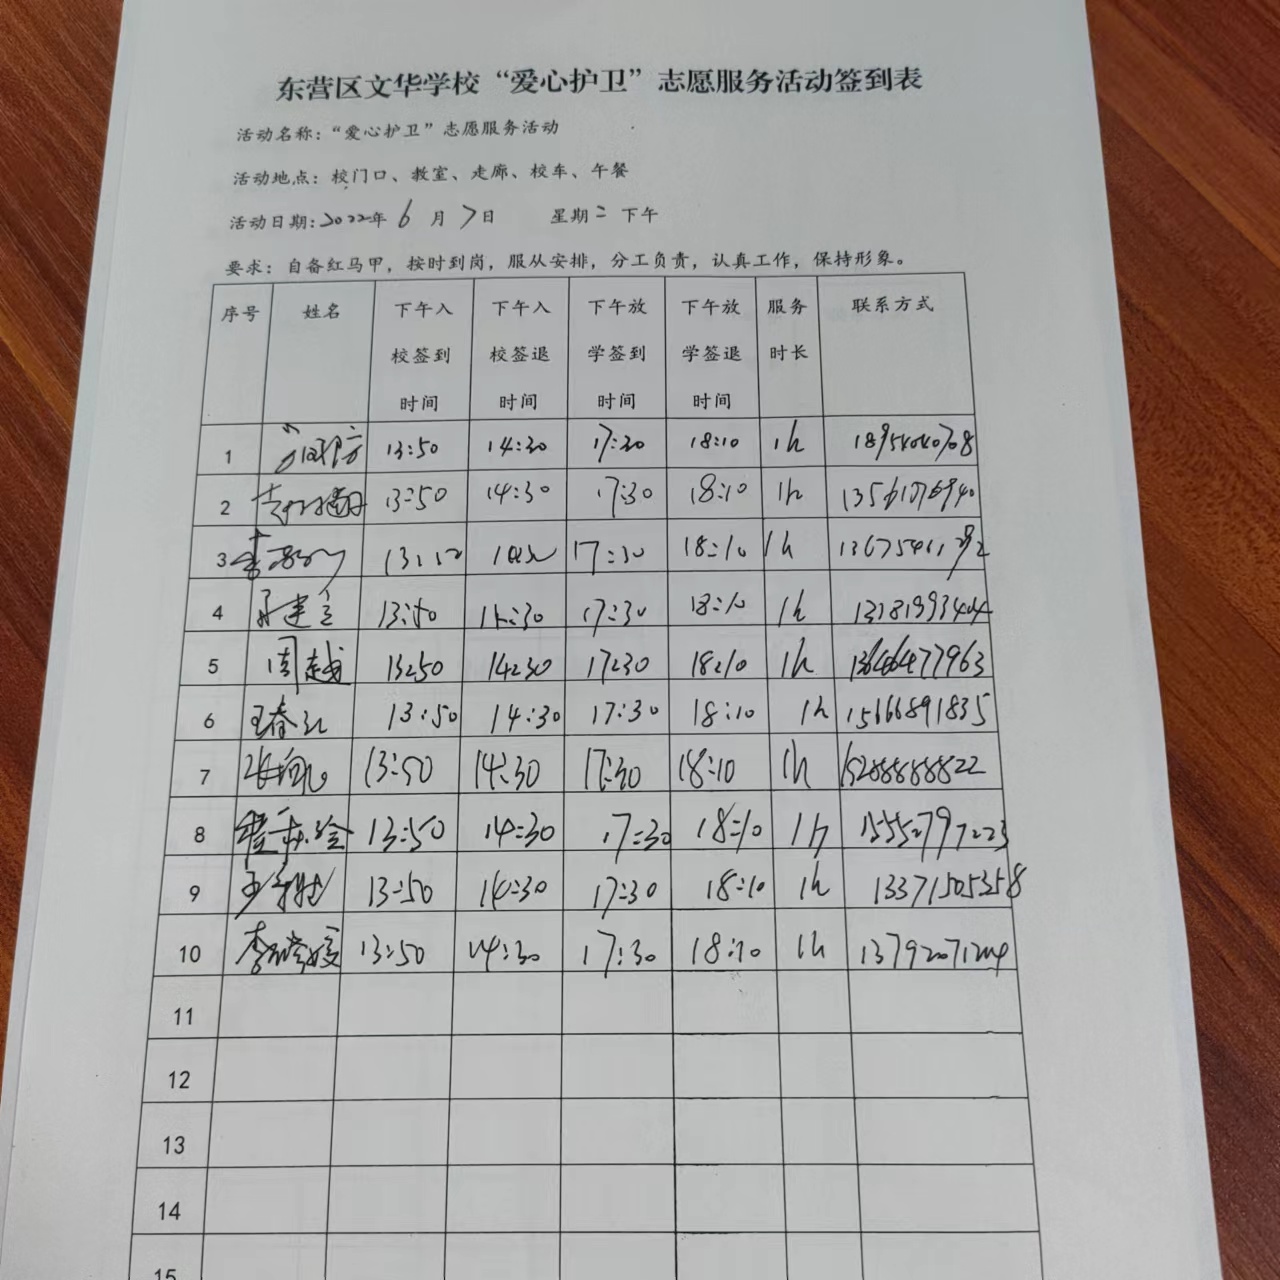 东营区文华学校“爱心护卫”志愿服务活动签到表
活动名称：“爱心护卫”志愿服务活动
活动地点：校门口、教室、走廊、校车、午餐
活动日期：2022年 6 月 7日 星期二 下午
要求：自备红马甲，按时到岗，服从安排，分工负责，认真工作，保持形象。
序号 姓名 下午入校签到时间 下午入校签退时间 下午放学签到时间 下午放学签退时间 服务时长 联系方式
1 13:50 14:30 17:30 18:10 1h
2 13:50 14:30 17:30 18:10 1h
3 17:30 18:10 1h
4 13:50 14:30 17:30 18:10 1h
5 周越 13:50 14:30 17:30 18:10 1h 13646477963
6 13:50 14:30 17:30 18:10 1h 15666891835
7 13:50 14:30 17:30 18:10 1h 15288888822
8 13:50 14:30 17:30 18:10 1h 15552797223
9 13:50 14:30 17:30 18:10 1h 13371505358
10 13:50 14:30 17:30 18:10 1h 13792071204
11
12
13
14
15